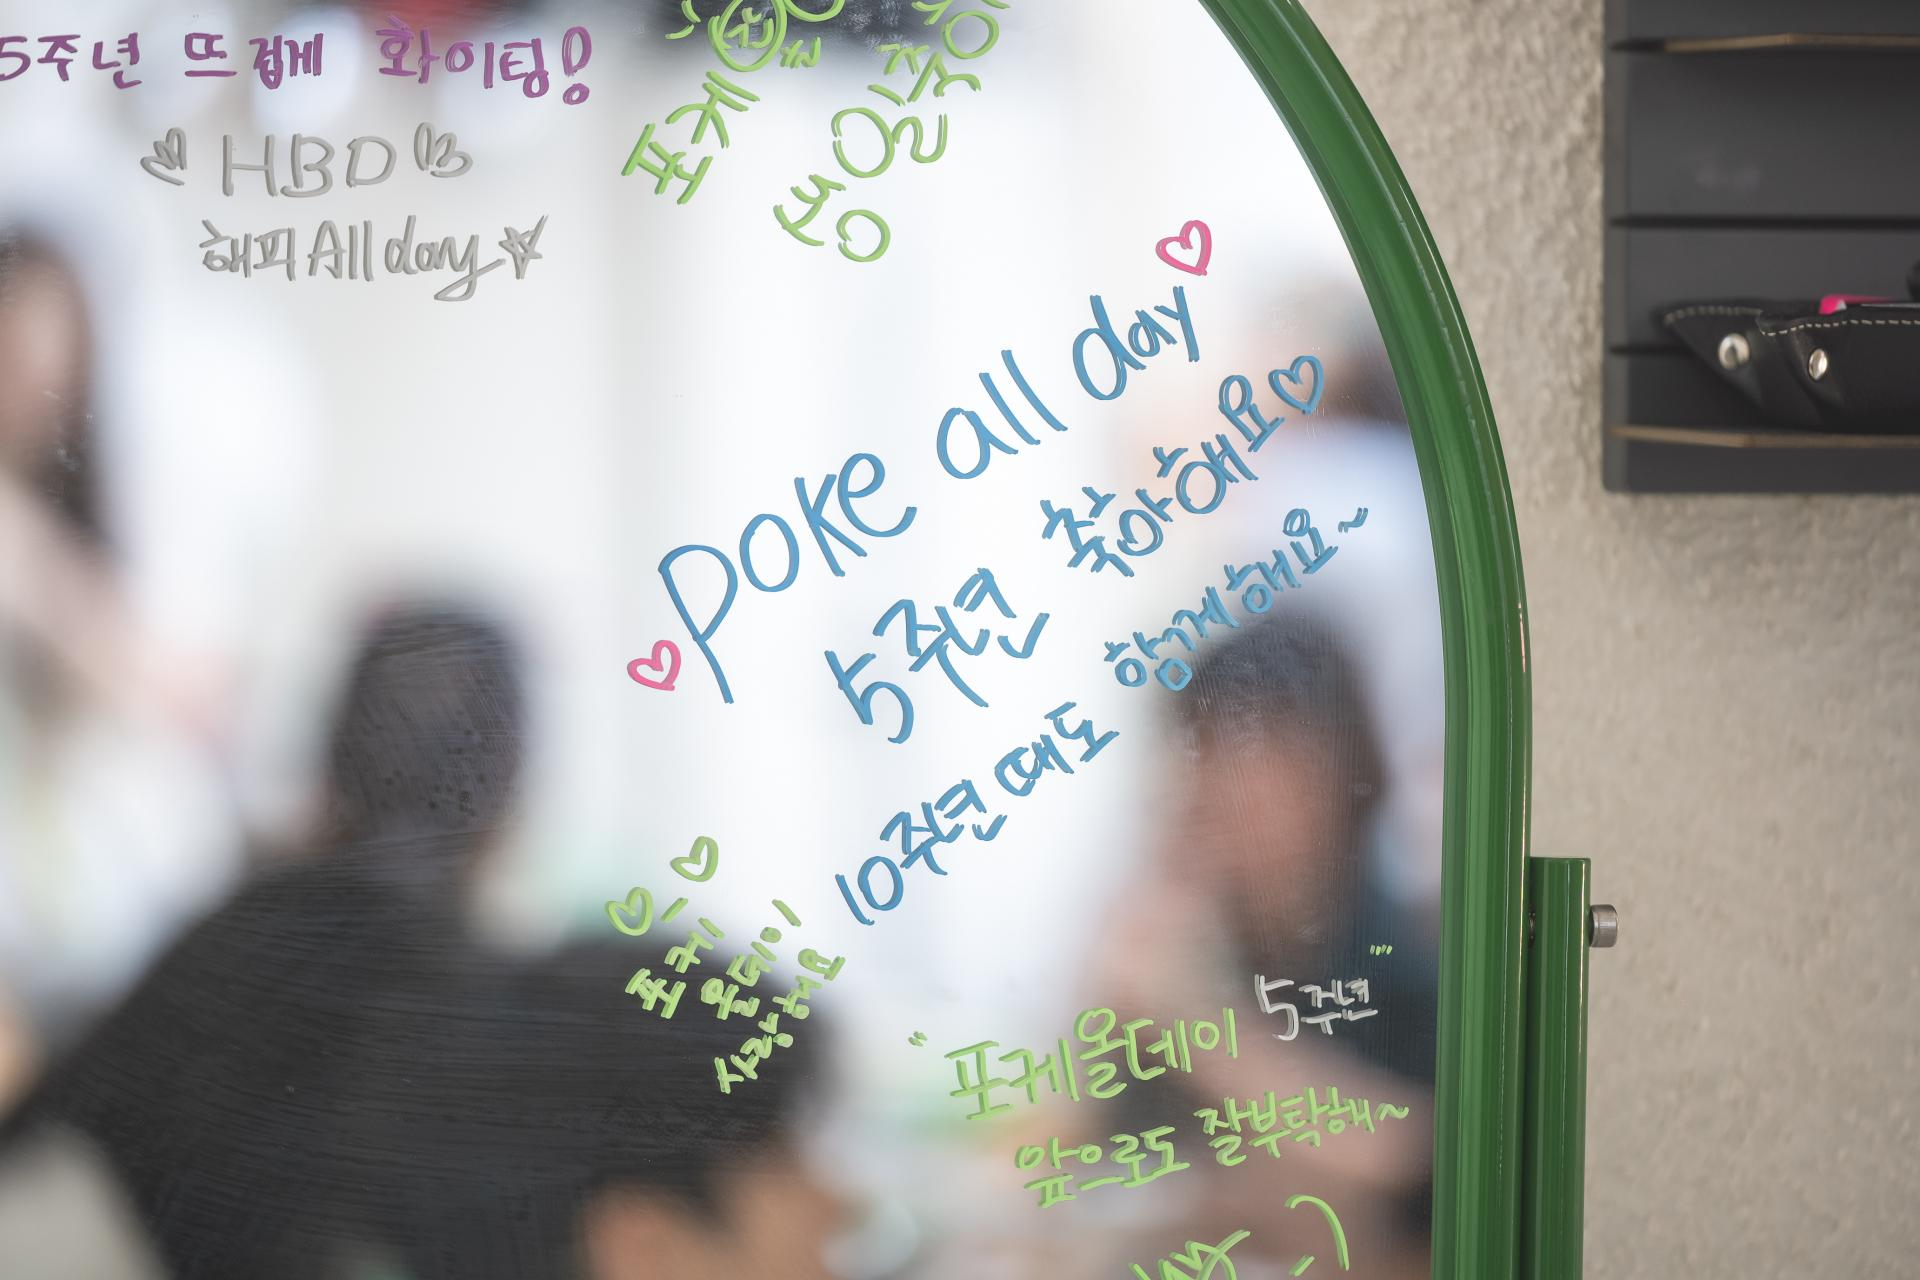 5주년 뜨겁게 화이팅!
HBD
해피 All day
포케
poke all day
5주년 축하해요
10주년 때도 함께해요~
포케
올데이
사랑해요
"포케올데이 5주년"
앞으로도 잘부탁해~